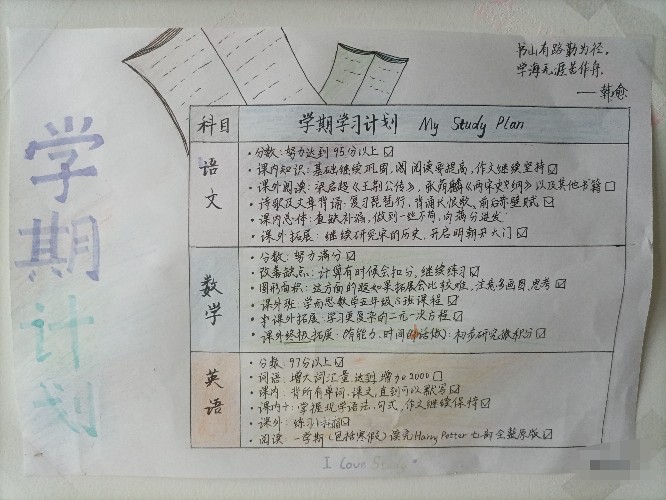 书山有路勤为径，
学海无涯苦作舟。
——韩愈
学期计划
科目 学期学习计划 My Study Plan
语文
·分数：努力达到95分以上☑
·课内知识：基础继续巩固，阅读要提高，作文继续坚持☑
·课外阅读：梁启超《王荆公传》，张荫麟《两宋史纲》以及其他书籍☐
·诗歌及文章背诵：复习琵琶行，背诵长恨歌，前后赤壁赋☑
·课内总体：查缺补漏，做到一丝不苟，向满分进发
·课外拓展：继续研究宋的历史，开启明朝大门☑
数学
·分数：努力满分☑
·改善缺点：计算有时候会扣分，继续练习☑
·图形面积：这方面的题如果拓展会比较难，注意多画图，思考☑
·课外班：学而思数学五年级S班课程☑
·课外拓展：学习更复杂的二元一次方程☑
·课外终极拓展：(有能力、时间的话做)：初步研究微积分☑
英语
·分数：97分以上☑
·词语：增大词汇量达到增加2000☐
·课内：背所有单词、课文，直到可以默写☑
·课内+：掌握现学语法、句式，作文继续保持☑
·课外：练习
·阅读：一学期(包括寒假)读完Harry Potter七部全整原版☑
I Love Study